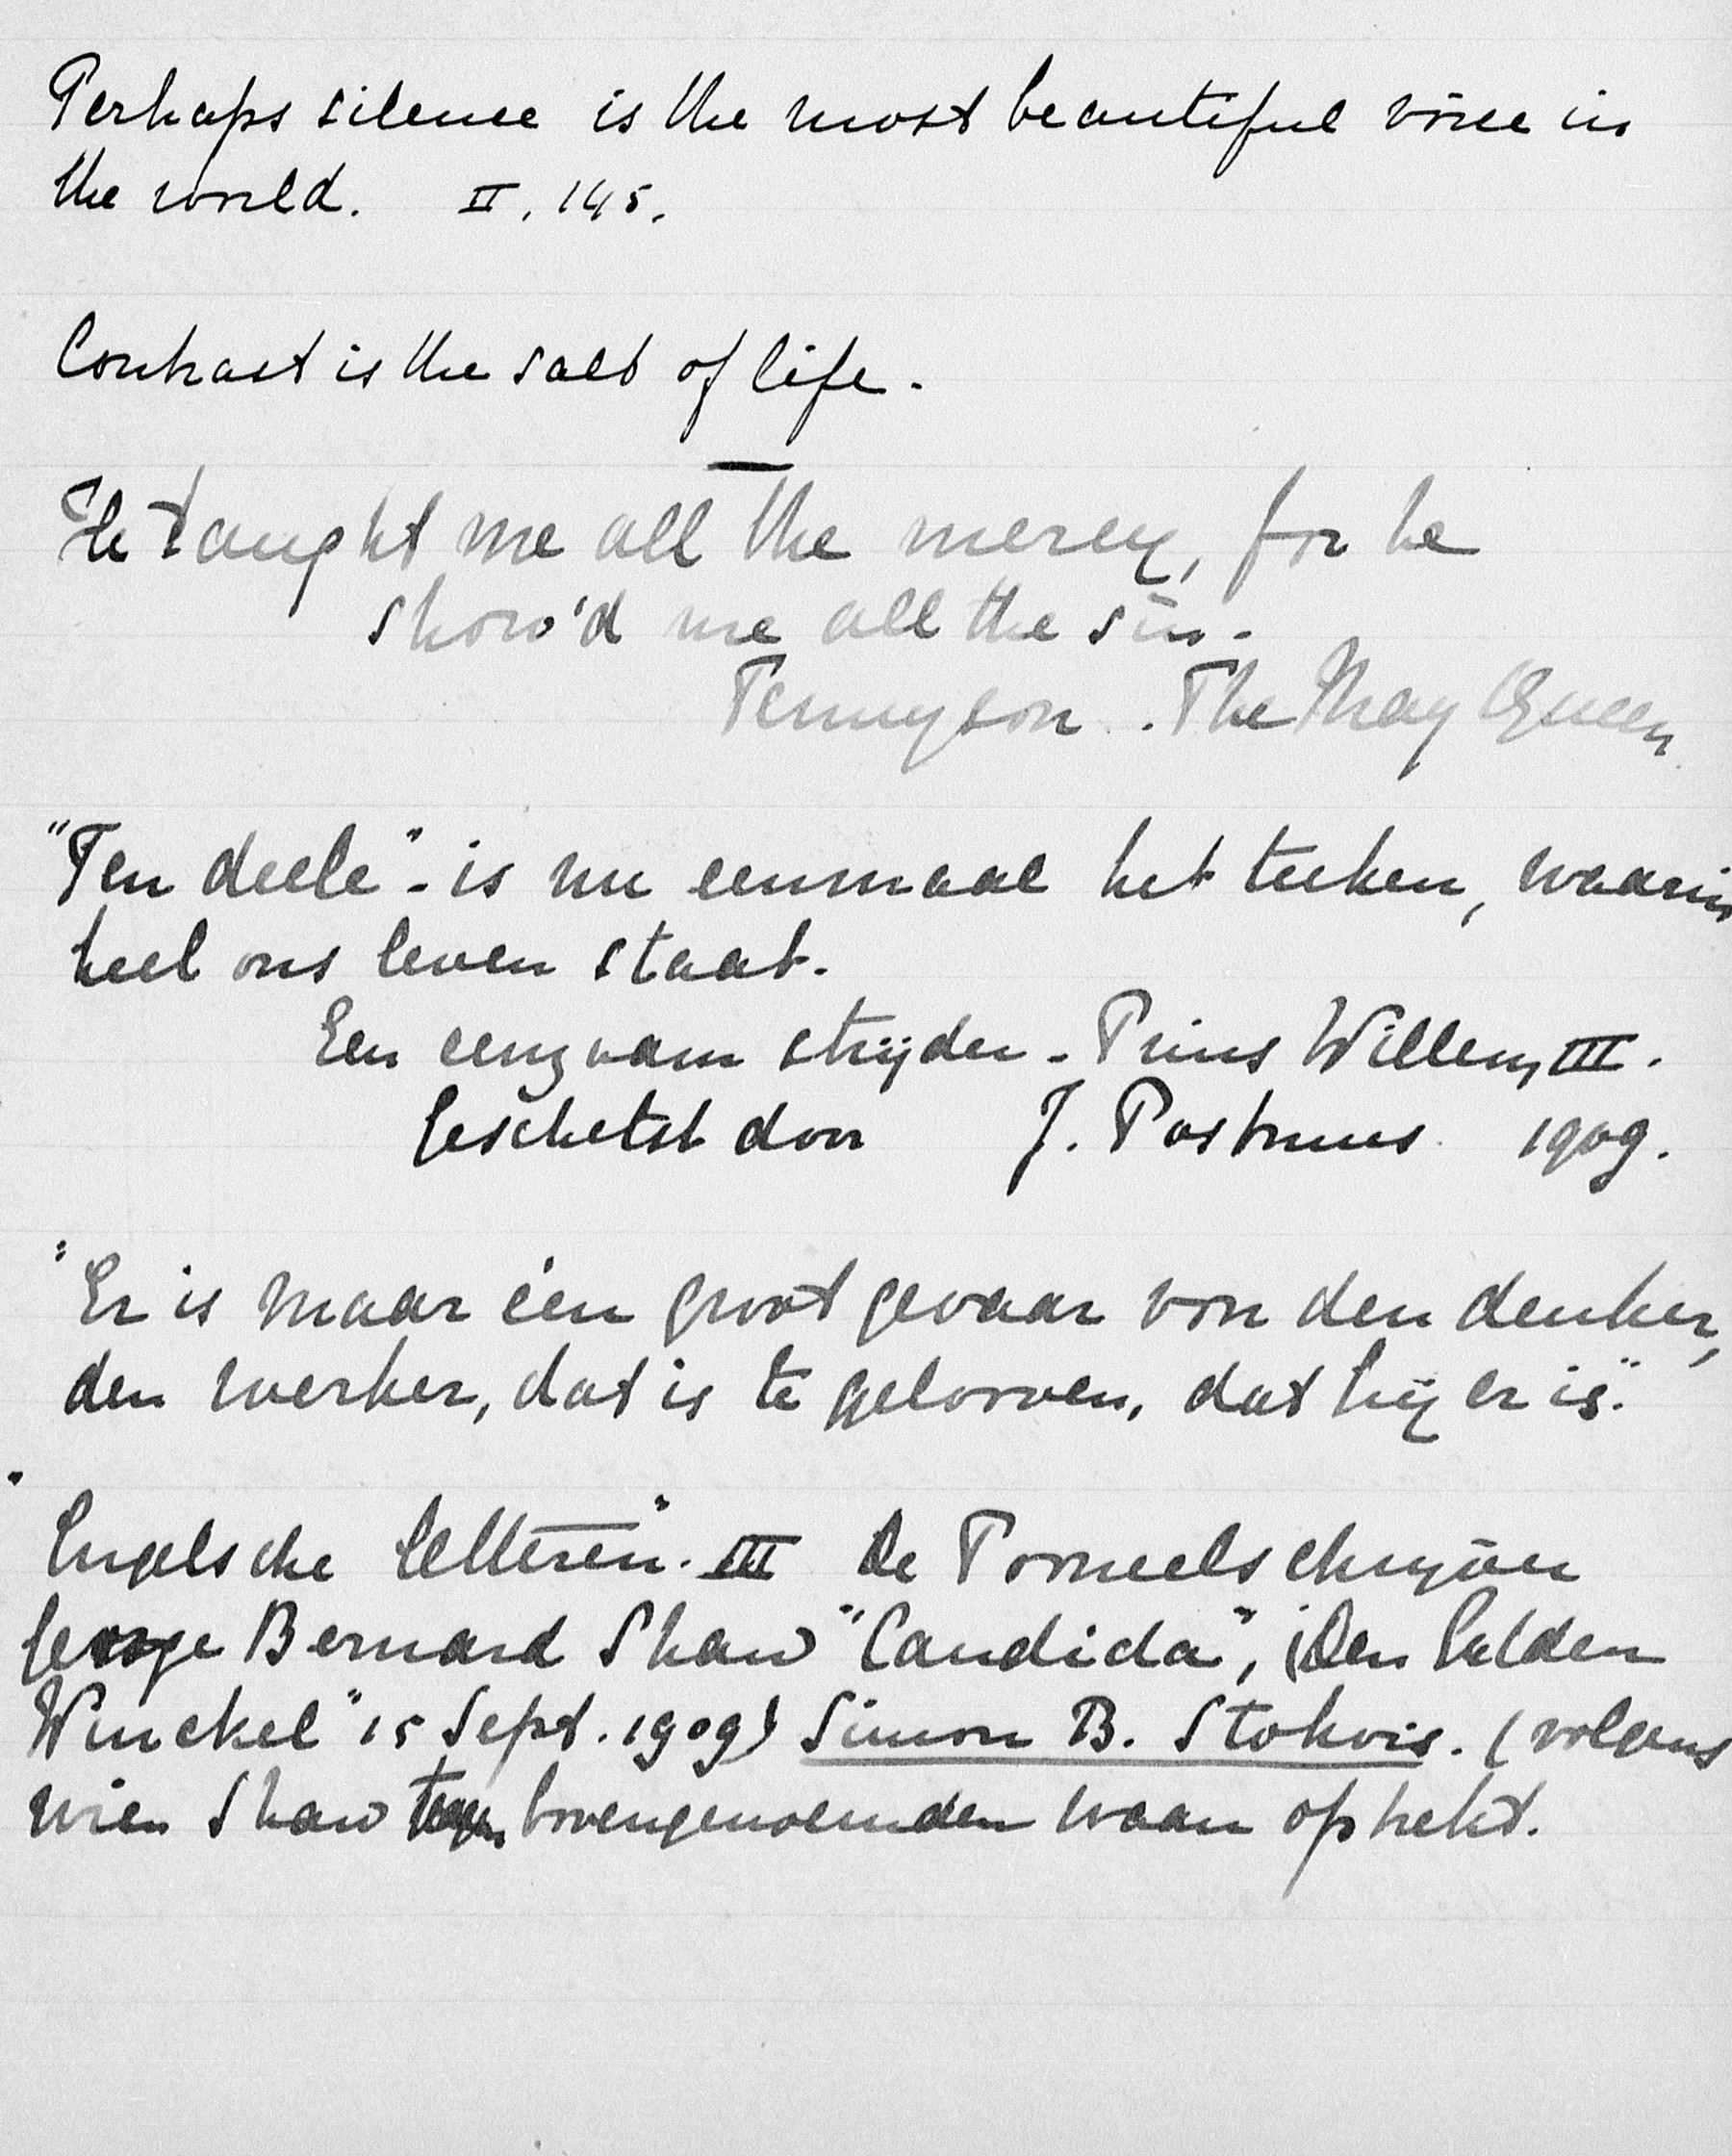 Perhaps silence is the most beautiful voice in
the world. II. 145.
Contrast is the salt of life.
He taught me all the mercy, for he
show'd me all the sin.
Tennyson. The May Queen
"Ten deele" - is nu eenmaal het teeken, waarin
heel ons leven staat.
Een eenzaam strijder - Prins Willem III.
Geschetst door J. Postmus 1909.
"Er is maar één groot gevaar voor den denker,
den werker, dat is te gelooven, dat hij er is."
"Engelsche Letteren". III De Tooneelschrijver
George Bernard Shaw "Candida", (Den Gulden
Winckel" 15 Sept. 1909) Simon B. Stokvis. (volgens
wien Shaw tegen bovengenoemden waan optrekt.